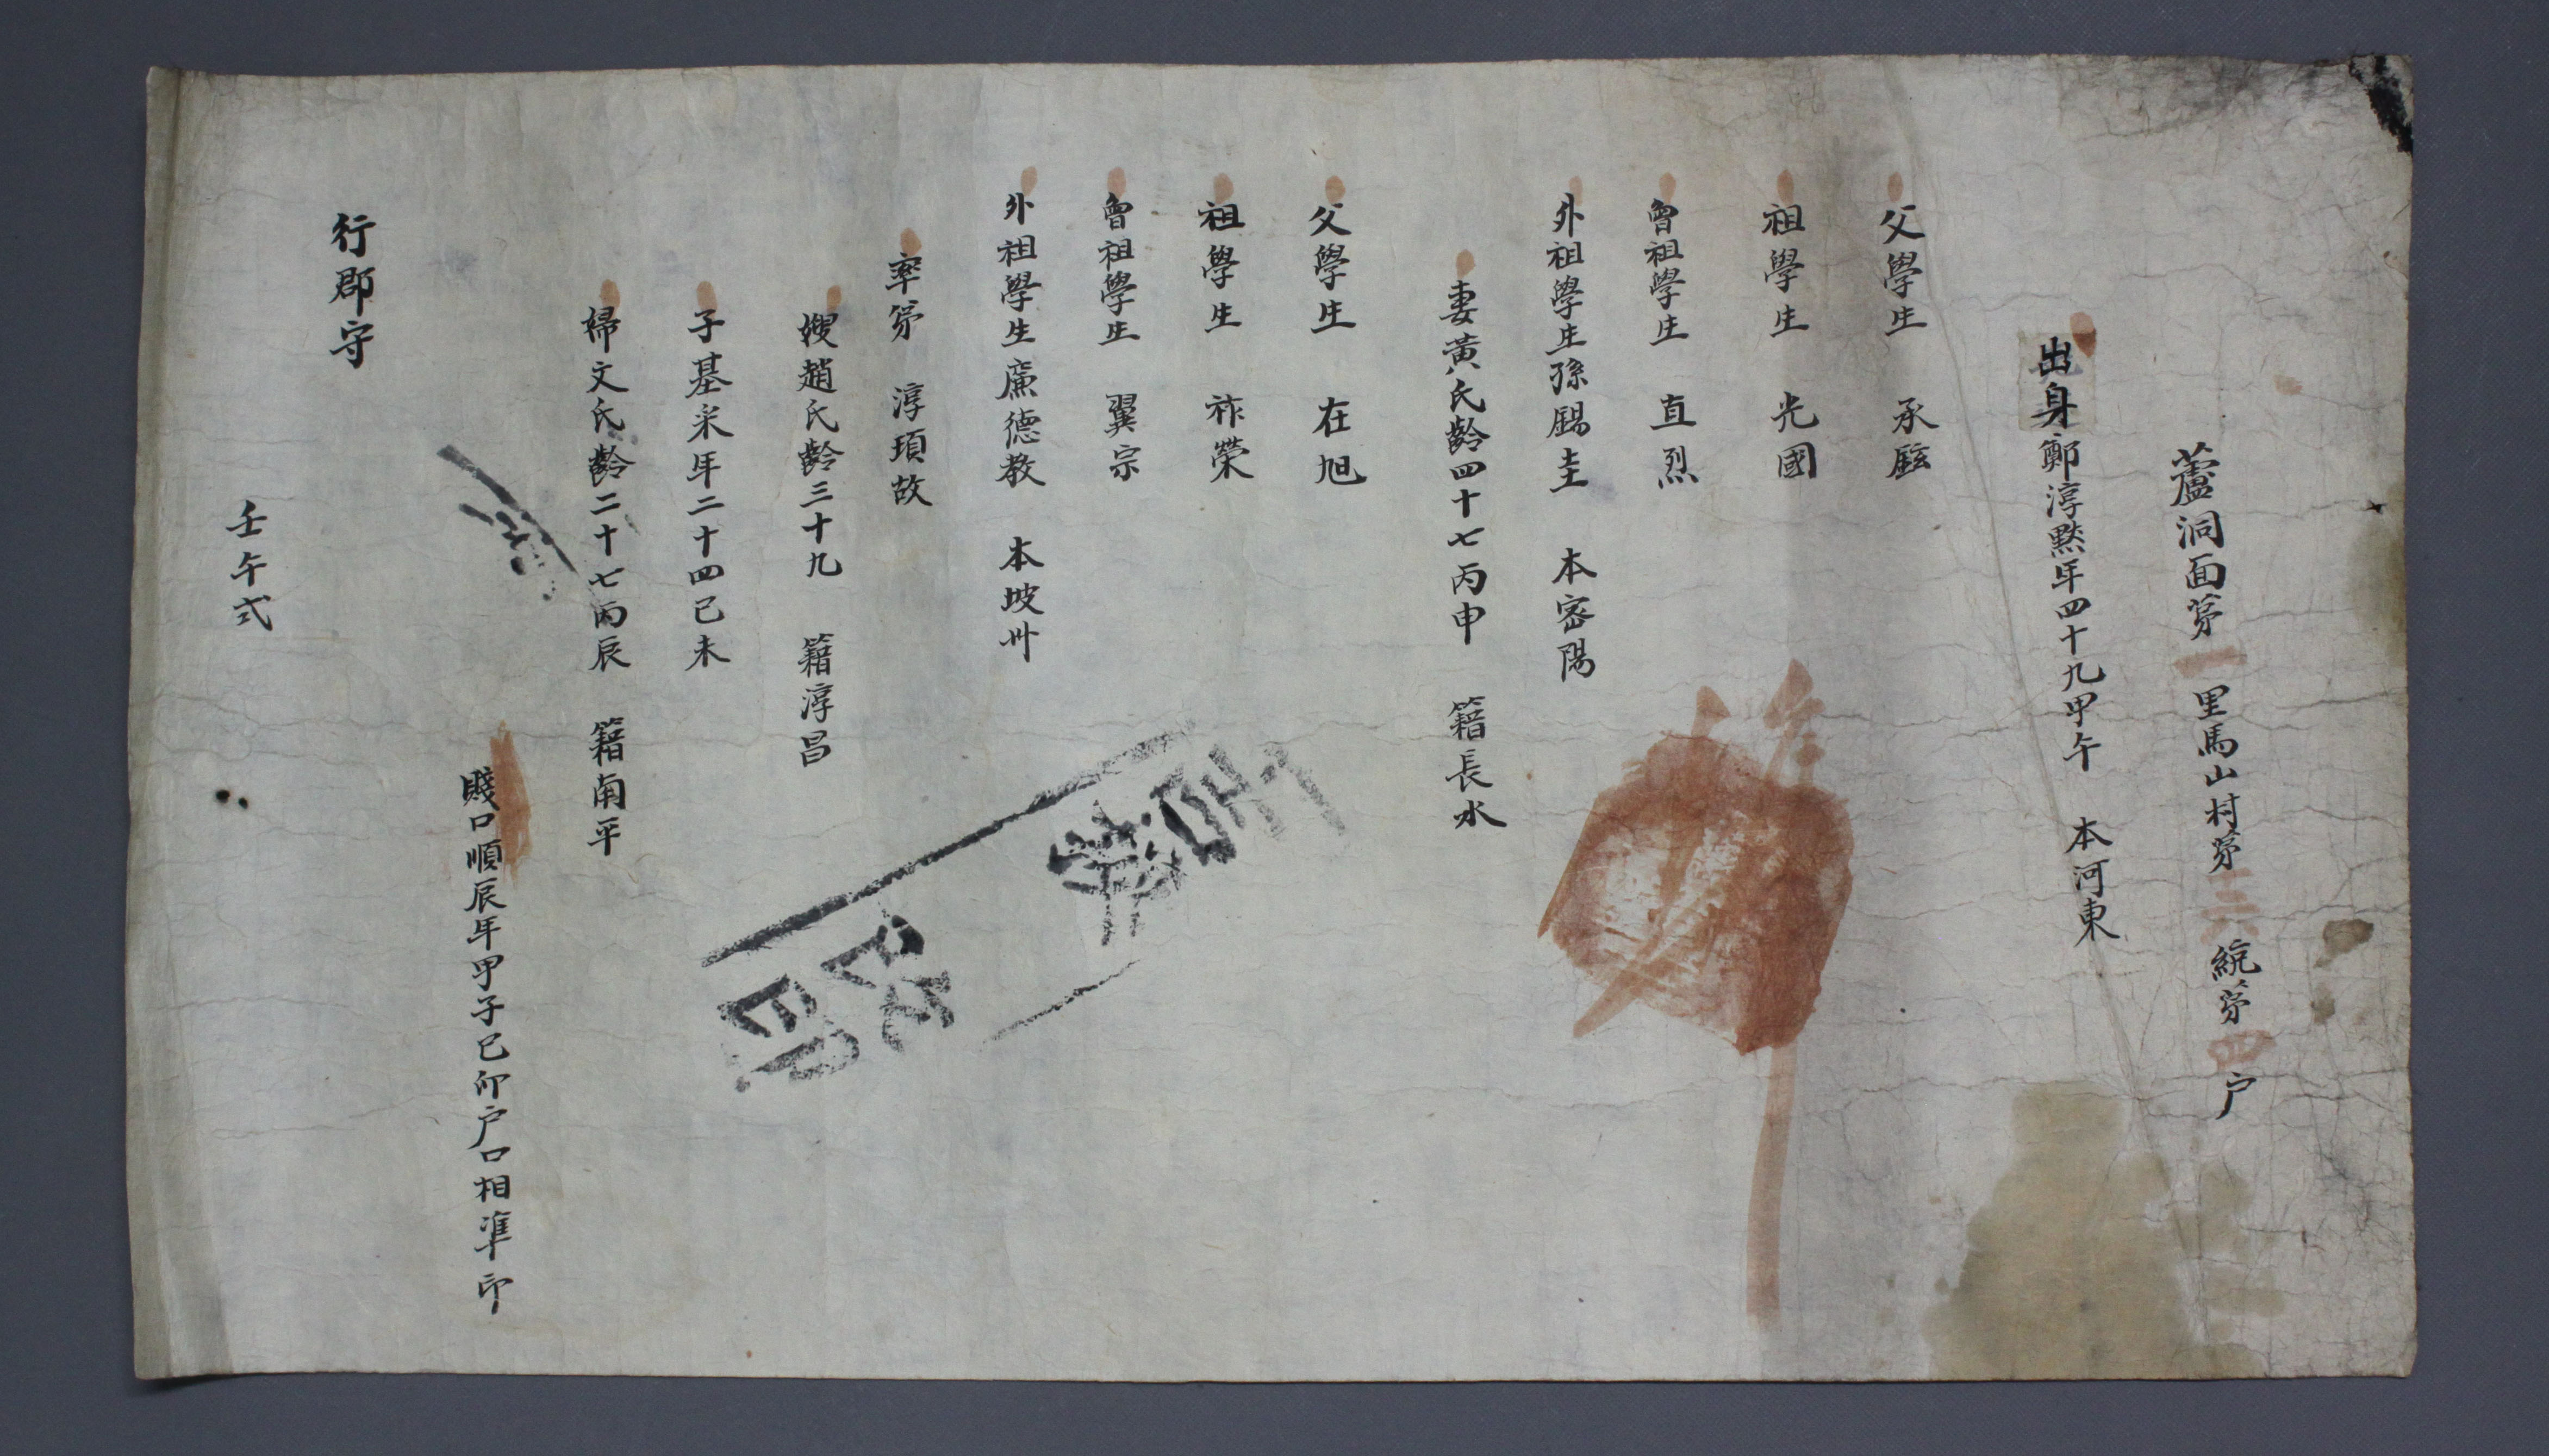 蘆洞面第一里馬山村第三統第四户
出身鄭淳默年四十九甲午 本河東
父學生 承
祖學生 光國
曾祖學生 直烈
外祖學生孫錫圭 本密陽
妻黃氏齡四十七丙申 籍長水
父學生 在旭
祖學生 祚榮
曾祖學生 翼宗
外祖學生廉德教 本坡州
率弟 淳頊故
嫂趙氏齡三十九 籍淳昌
子基采年二十四己未
婦文氏齡二十七丙辰 籍南平
賤口順辰年甲子己卯户口相準印
行郡守
壬午式